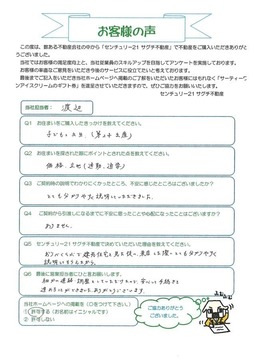 お客様の声
この度は、数ある不動産会社の中から「センチュリー21 サグチ不動産」で不動産をご購入いただきありがと
うございました。
当社ではお客様の満足度向上と、当社従業員のスキルアップを目指してアンケートを実施しております。
お客様の率直なご意見をいただき今後のサービスに役立てたいと考えております。
最後までご記入をいただき当社ホームページへ掲載のご了解をいただいたお客様にはもれなく「サーティーワ
ンアイスクリームのギフト券」を進呈させていただきますので、ぜひご協力をお願いいたします。
センチュリー21 サグチ不動産
当社担当者： 渡辺
Q1 お住まいをご購入したきっかけを教えてください。
子どもの人数、(第2子出産)
Q2 お住まいを探された際にポイントとされた点を教えてください。
価格、立地(通勤、通学)
Q3 ご契約時の説明でわかりにくかったところ、不安に感じたところはございましたか？
とても分かりやすく説明いただきました。
Q4 ご契約から引渡しになるまでに不安に思ったことや心配になったことはございますか？
ありません。
Q5 センチュリー21サグチ不動産で決めていただいた理由を教えてください。
Q6 最後に営業担当者にひと言お願いします。
ありがとうございます。
当社ホームページへの掲載を（○をつけて下さい。）
① 許可する（お名前はイニシャルです）
② 許可しない
ご協力ありがとう
ございました。